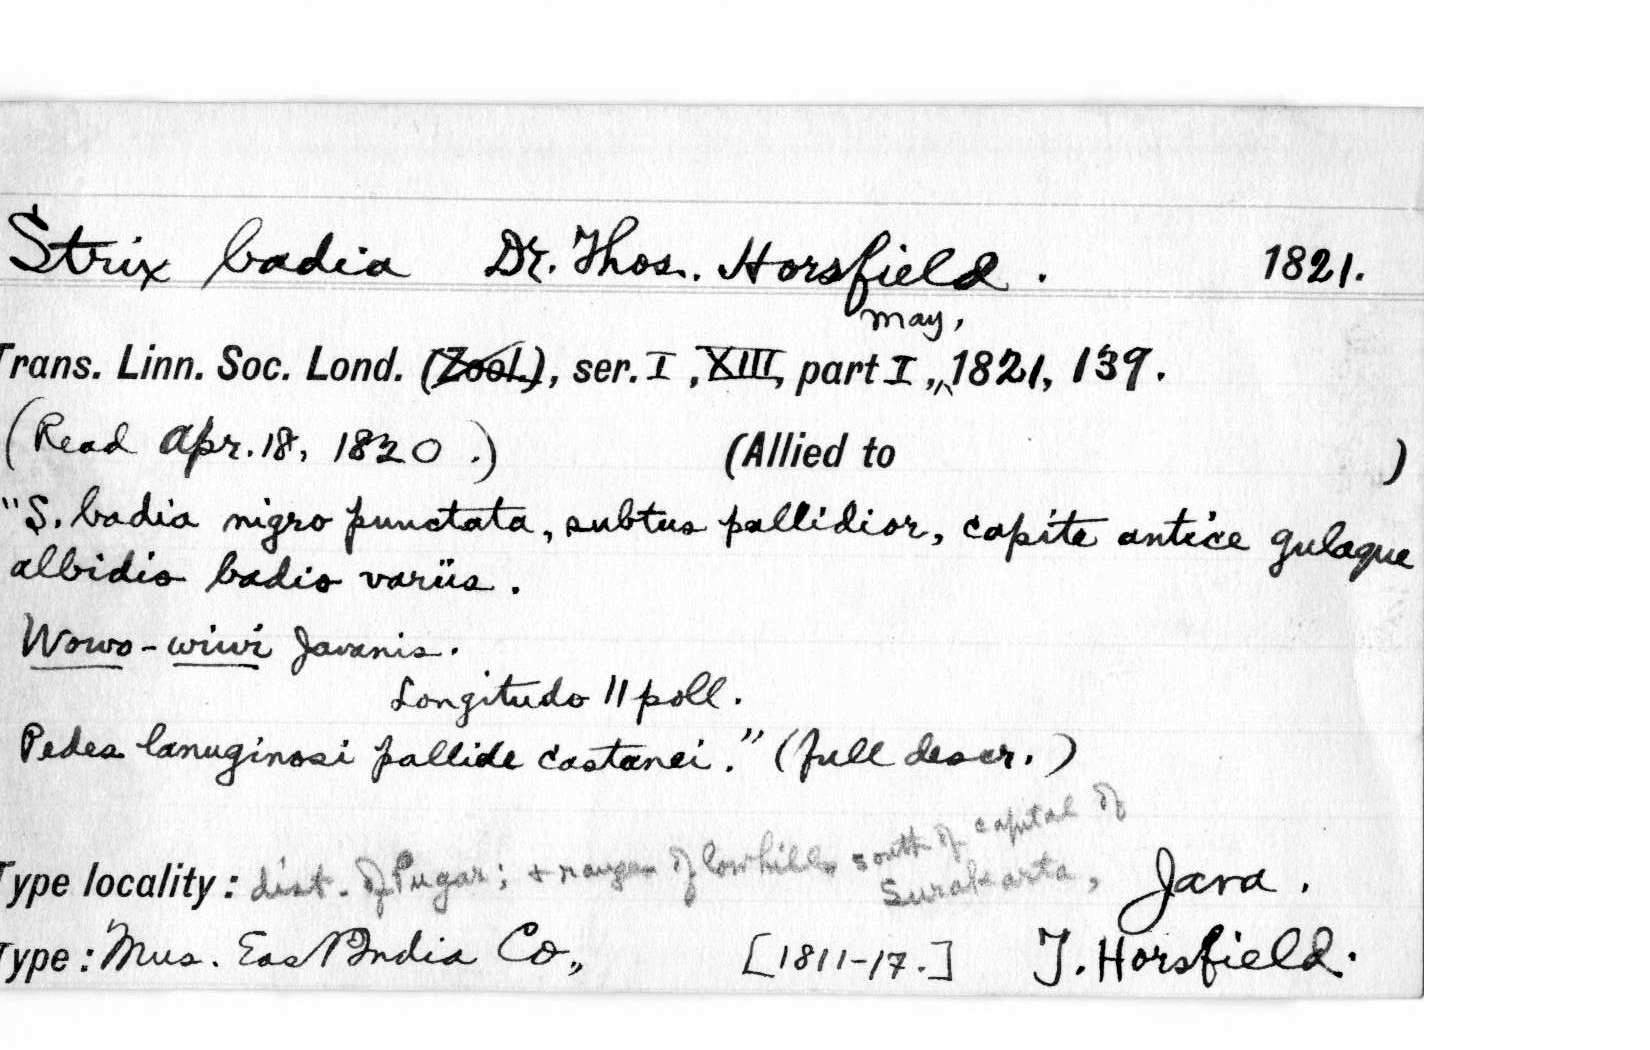 Strix badia Dr. Thos. Horsfield. 1821.
May,
Trans. Linn. Soc. Lond. (Zool.), ser. I, XIII, part I, 1821, 139.
(Read Apr. 18, 1820.) (Allied to )
"S. badia nigro punctata, subtus pallidior, capite antice gulaque
albidis badio variis.
Wowo-wiwi Javanis.
Longitudo 11 poll.
Pedes lanuginosi pallide castanei." (full descr.)
Type locality: dist. of Pugar; + ranges of low hills south of capital of
Surakarta, Java.
Type: Mus. East India Co., [1811-17.] T. Horsfield.